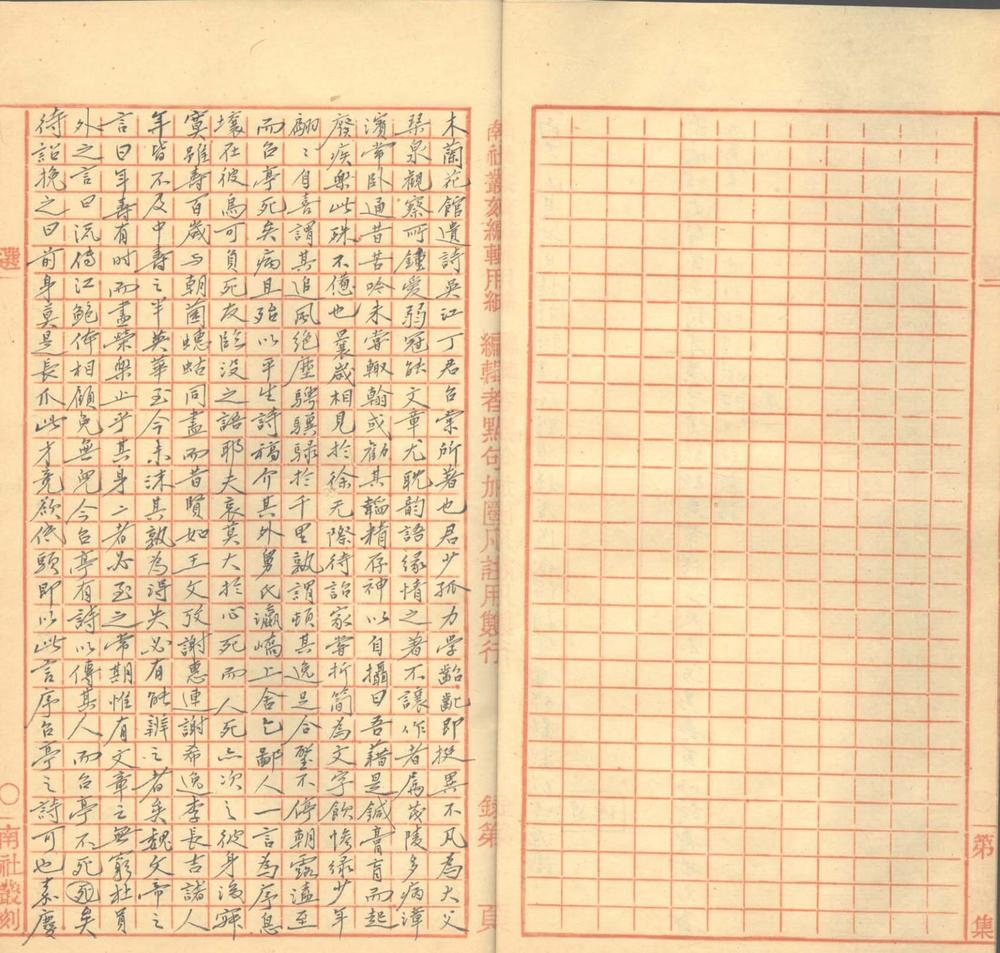 第　集
南社叢刻編輯用紙　編輯者點句加圈凡註用雙行　錄第　頁
木蘭花館遺詩吳江丁君台棠所著也君少孤力學齠齔即挺異不凡為大父
琹泉觀察所鍾愛弱冠能文章尤耽韵語緣情之著不讓作者屬茂陵多病漳
濱常卧通昔苦吟未嘗輟翰或勸其韜精存神以自攝曰吾藉是鍼膏肓而起
廢疾樂此殊不倦也曩歲相見於徐无際待詔家嘗折簡為文字飲慘綠少年
翩々自喜謂其追風絕塵騁驥騄於千里孰謂頓其逸足合璧不停朝露溘至
而台亭死矣病且殆以平生詩稿介其外舅氏瀛嶠上舍乞鄙人一言為序息
壤在彼焉可負死友臨没之語耶夫哀莫大於心死而人死亦次之彼身後寂
寞雖壽百歲与朝菌蟪蛄同盡而昔賢如王文攷謝惠連謝希逸李長吉諸人
年皆不及中壽之半英華至今未沫其孰為得失必有能辨之者矣魏文帝之
言曰年壽有时而盡榮樂止乎其身二者必至之常期惟有文章之無窮杜員
外之言曰流傳江鮑体相顧免無兒今台亭有詩以傳其人而台亭不死矣
待詔挽之曰前身莫是長爪此才竟欲低頭即以此言序台亭之詩可也素慶
選　○　南社叢刻